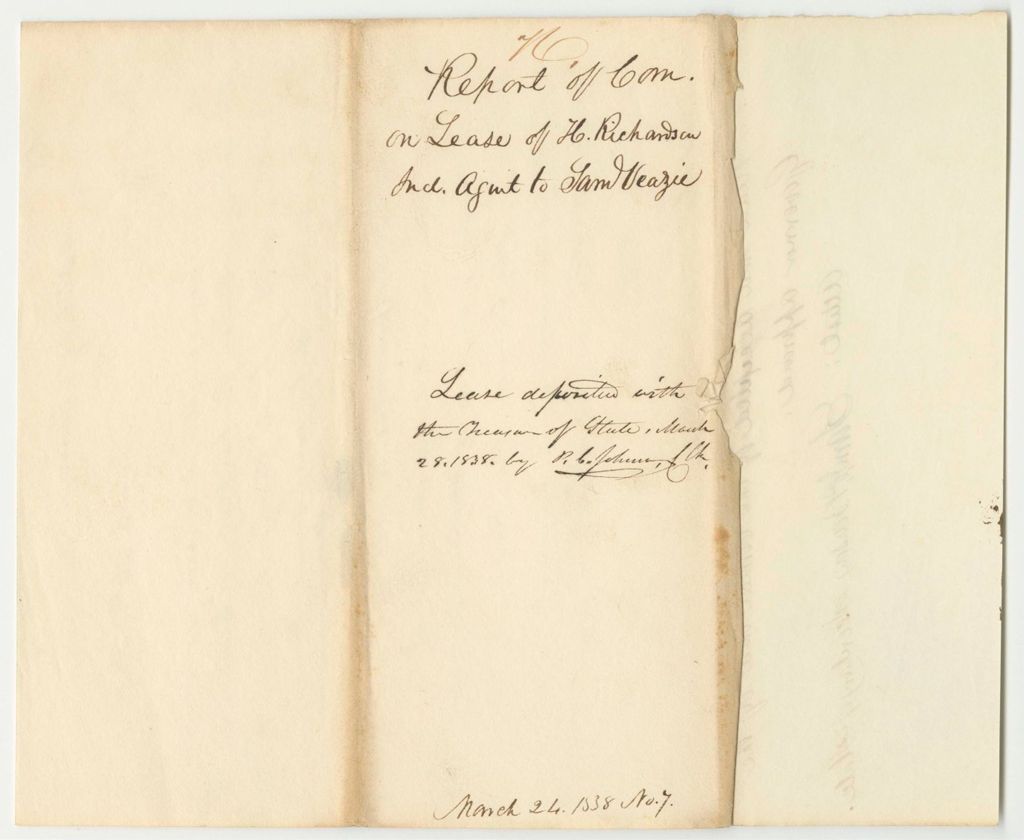 Report of Com.
on Lease of H. Richardson
Ind. Agent to Saml Veazie
Lease deposited with
the Treasurer of State, March
28. 1838. by P. C. Johnson, Clk.
March 24. 1838 No. 7.